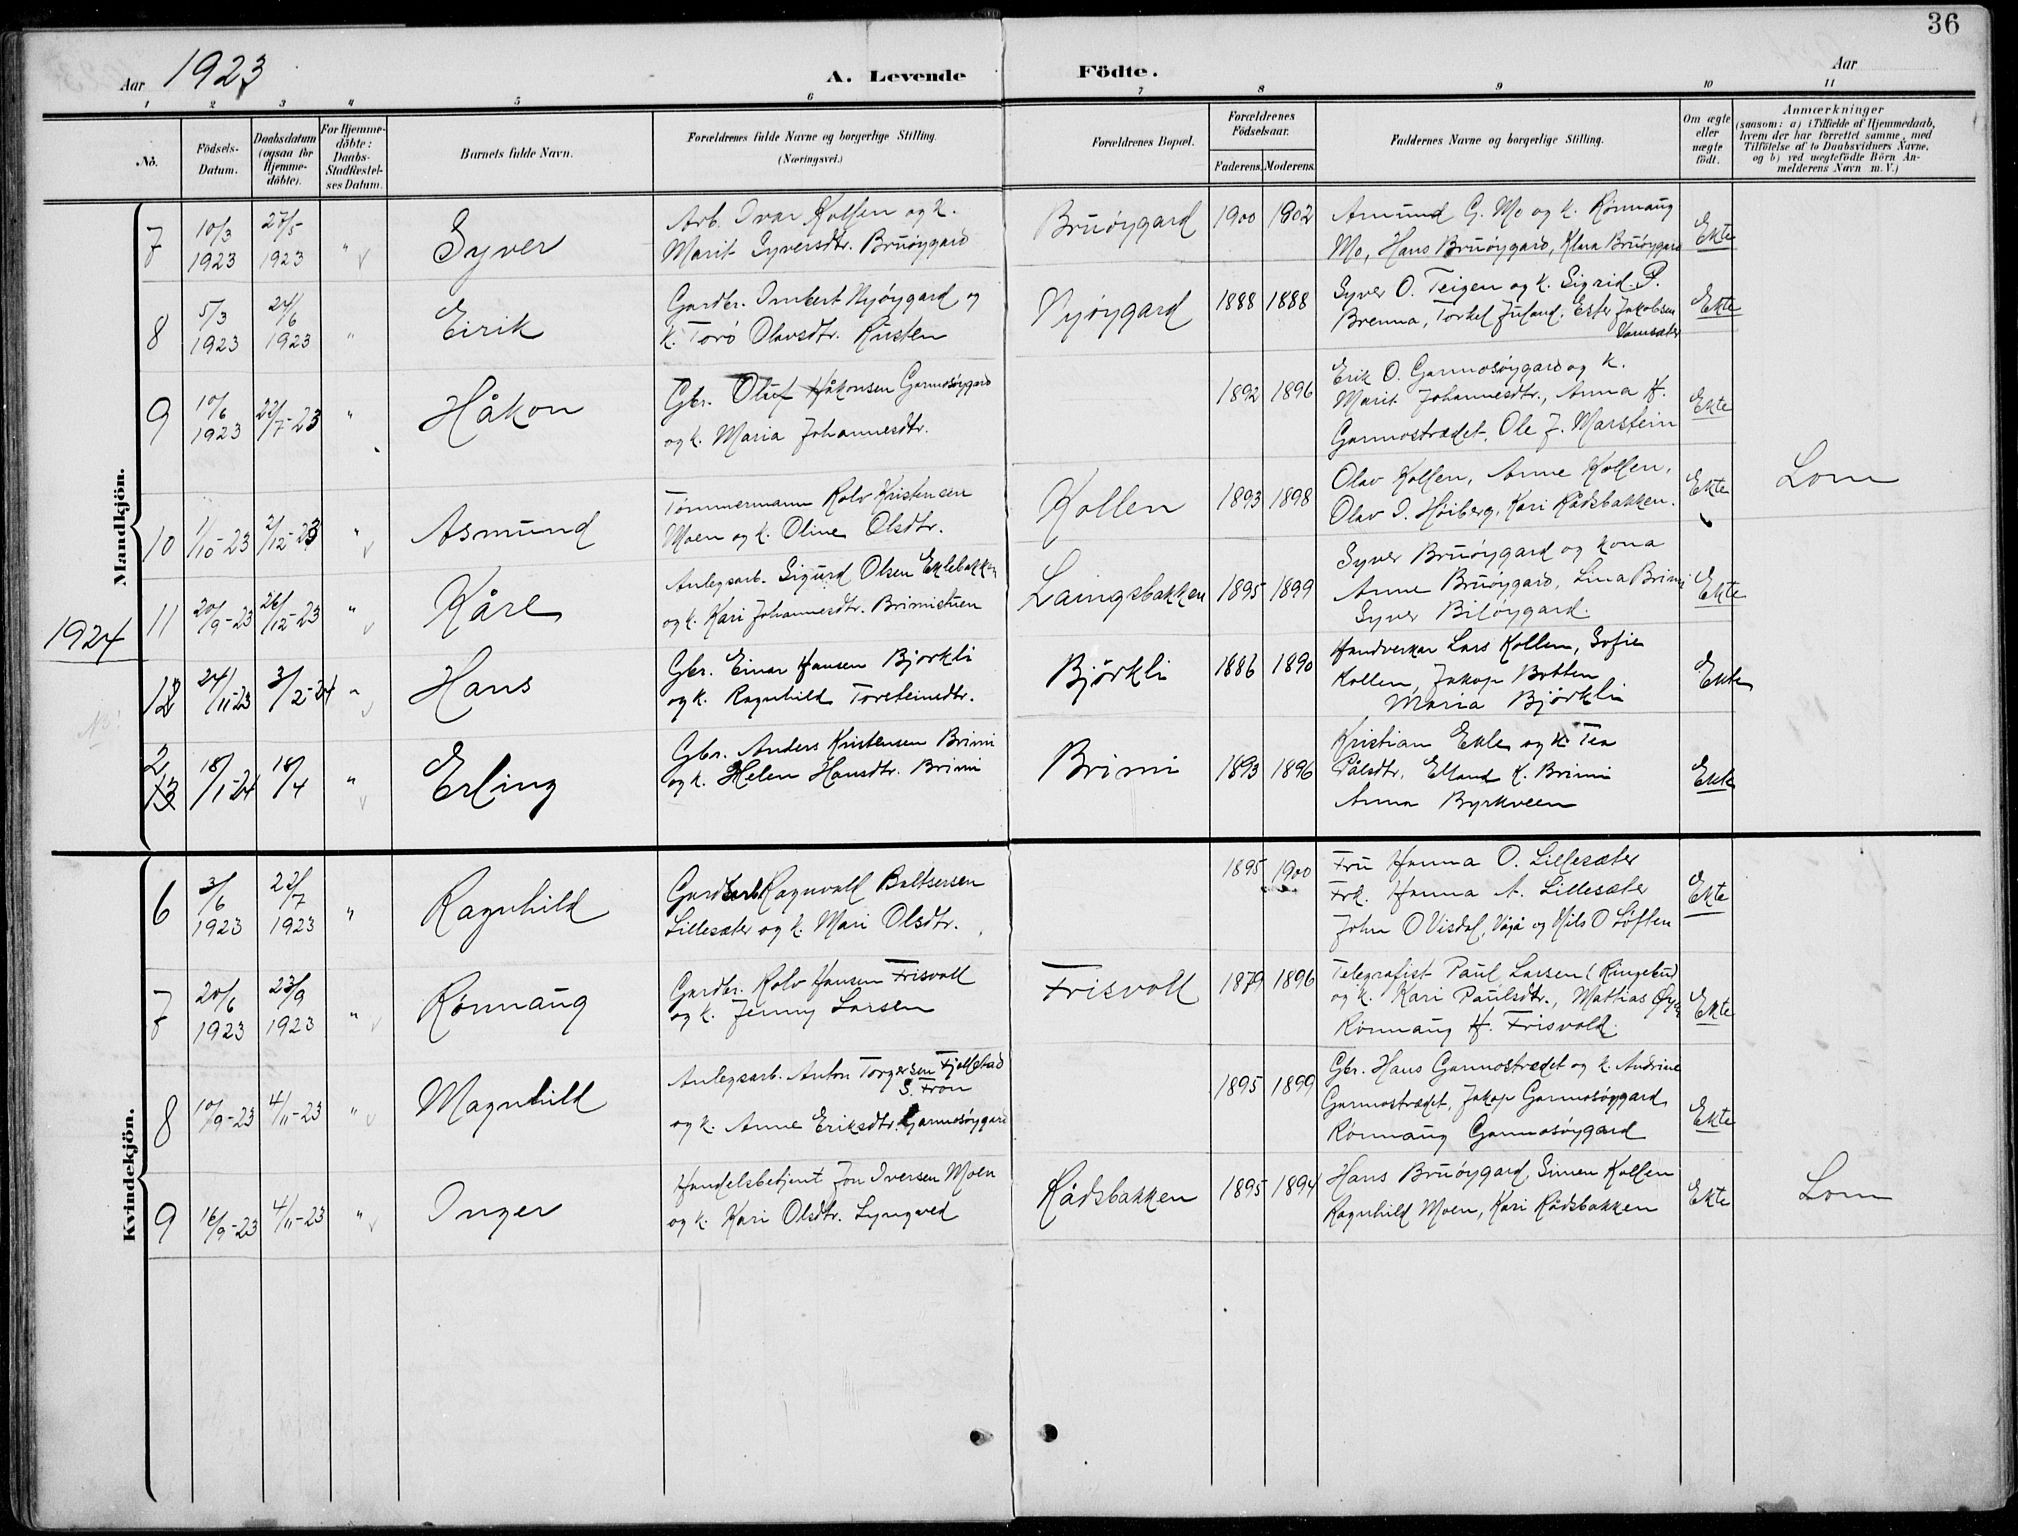 36
Aar 1923 A. Levende Födte. Aar
1 2 3 4 5 6 7 8 9 10 11
No.
Födsels-Datum.
Daabsdatum (ogsaa for Hjemme-döbte).
For Hjemme-döbte: Daabs-Stadfestel-ses Datum.
Barnets fulde Navn.
Forældrenes fulde Navne og borgerlige Stilling. (Næringsvei.)
Forældrenes Bopæl.
Forældrenes Födselsaar.
Faderens. Moderens.
Faddernes Navne og borgerlige Stilling.
Om ægte eller uægte födt.
Anmærkninger
(saasom: a) i Tilfælde af Hjemmedaab, hvem der har forrettet samme, med Tilföielse af to Daabsvidners Navne, og b) ved uægtefödte Börn An-melderens Navn m. V.)
Mandkjön.
7 10/3 1923 27/5 1923 " Syver
Arb. Ivar Kolsen og k.
Marit Syversdtr. Bruøygard
Bruøygard 1900 1902
Amund G. Mo og k. Rønnaug
Mo, Hans Bruøygard, Klara Bruøygard
Ekte
8 5/3 1923 24/6 1923 " Eirik
Gardbr. Imbert Nyøygard og
k. Torø Olavsdtr. Kusten
Nyøygard 1888 1888
Syver O. Teigen og k. Sigrid P.
Brenna, Torkel Juland, Ester Jakobsen
Vamsæter
Ekte
9 10/6 1923 22/7-23 " Håkon
Gbr. Oluf Håkonsen Garmosøygard
og k. Maria Johannesdtr.
1892 1896
Erik O. Garmosøygard og k.
Marit Johannesdtr., Anna H.
Garmostrædet, Ole J. Marstein
Ekte
10 1/10-23 2/12-23 " Asmund
Tømmermann Rolv Kristensen
Moen og k. Oline Olsdtr.
Kollen 1893 1898
Olav Kollen, Anne Kollen,
Olav I. Høiberg, Kari Rådsbakken.
Ekte Lom
11 20/9-23 26/12-23 " Kåre
Anlegsarb. Sigurd Olsen Eklebakken
og k. Kari Johannesdtr. Brimistuen
Laingsbakken 1895 1899
Syver Bruøygard og kona
Anne Bruøygard, Lina Brimi
Syver Biløygard.
Ekte
1924
12 24/11-23 3/2-24 " Hans
Gbr. Einar Hansen Bjorkli
og k. Ragnhild Torsteinsdtr.
Björkli 1886 1890
Handverkar Lars Kollen, Sofie
Kollen, Jakop Botten
Maria Björkli
Ekte
2 13 18/1-24 18/4 " Erling
Gbr. Anders Kristensen Brimi
og k. Helen Hansdtr. Brimi
Brimi 1893 1896
Kristian Ekle og k. Tea
Pålsdtr, Elland K. Brimi
Anna Byrkveen
Ekte
Kvindekjön.
6 3/6 1923 22/7 1923 " Ragnhild
Gardsarb. Ragnvald Baltsersen
Lillesæter og k. Mari Olsdtr.
1895 1900
Fru Hanna O. Lillesæter
Frk. Hanna A. Lillesæter
John O Visdal, Vågå og Nils O Løften
Ekte
7 20/6 1923 23/9 1923 " Rønnaug
Gardbr. Rolv Hansen Frisvoll
og k. Jenny Larsen
Frisvoll 1879 1896
Telegrafist Paul Larsen (Ringebu)
og k. Kari Paulsdtr., Mattias Øyen
Rønnaug H. Frisvold.
Ekte
8 10/9-23 4/11-23 " Magnhild
Anlegsarb. Anton Torgersen Fjellstad
S. Fron
og k. Anne Eriksdtr. Garmosøygard
1895 1899
Gbr. Hans Garmostrædet og k. Andrine
Garmostrædet, Jakop Garmosøygard
Rønnaug Garmosøygard
Ekte
9 16/9-23 4/11-23 " Inger
Handelsbetjent Jon Iversen Moen
og k. Kari Olsdtr. Lyngved
Rådsbakken 1895 1894
Hans Bruøygard, Simen Kollen
Ragnhild Moen, Kari Rådsbakken
Ekte Lom